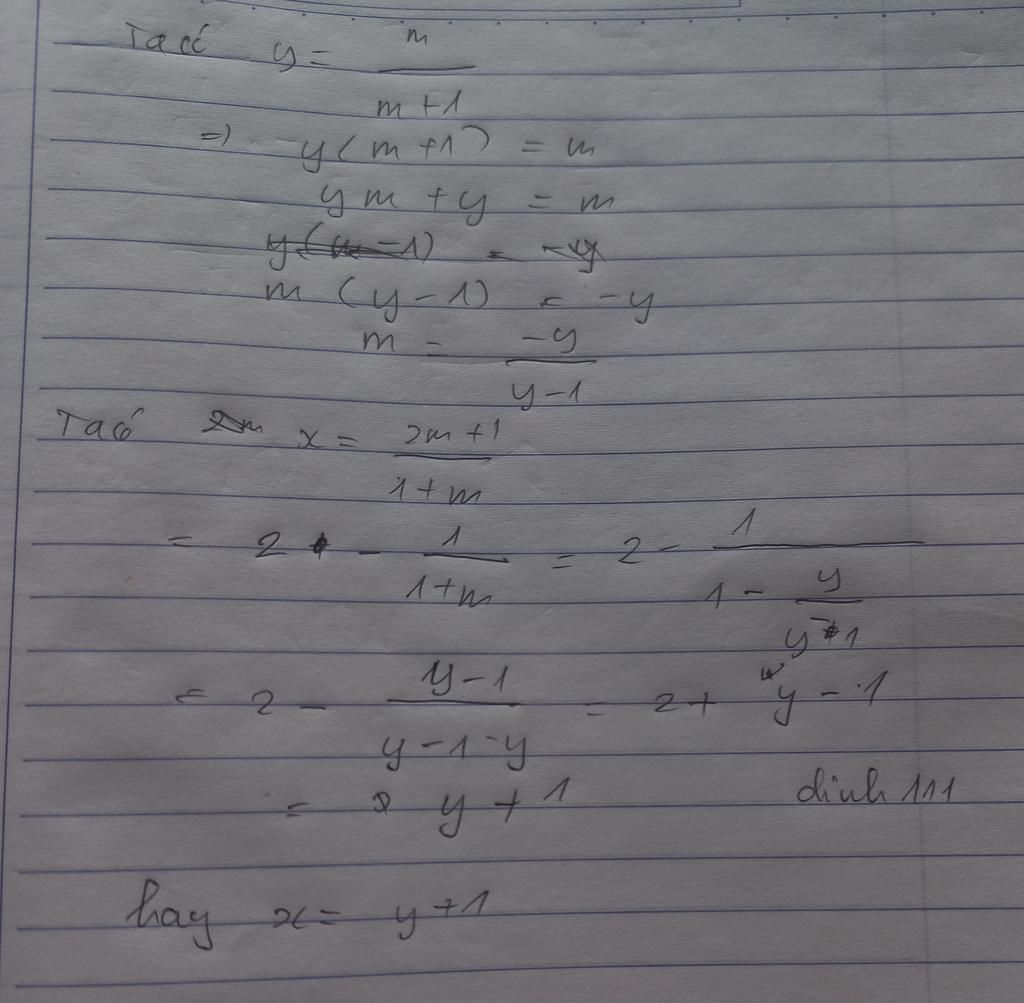 Ta có y = m / m+1
=) y(m+1) = m
ym + y = m
y(m-1) = -y
m (y-1) = -y
m = -y / y-1
Ta có 2m x = 2m+1 / 1+m
= 2 - 1 / 1+m = 2 - 1 / 1 - y / y-1
= 2 - y-1 / y-1-y = 2 + y - 1
= y + 1 dinh 111
hay x = y+1